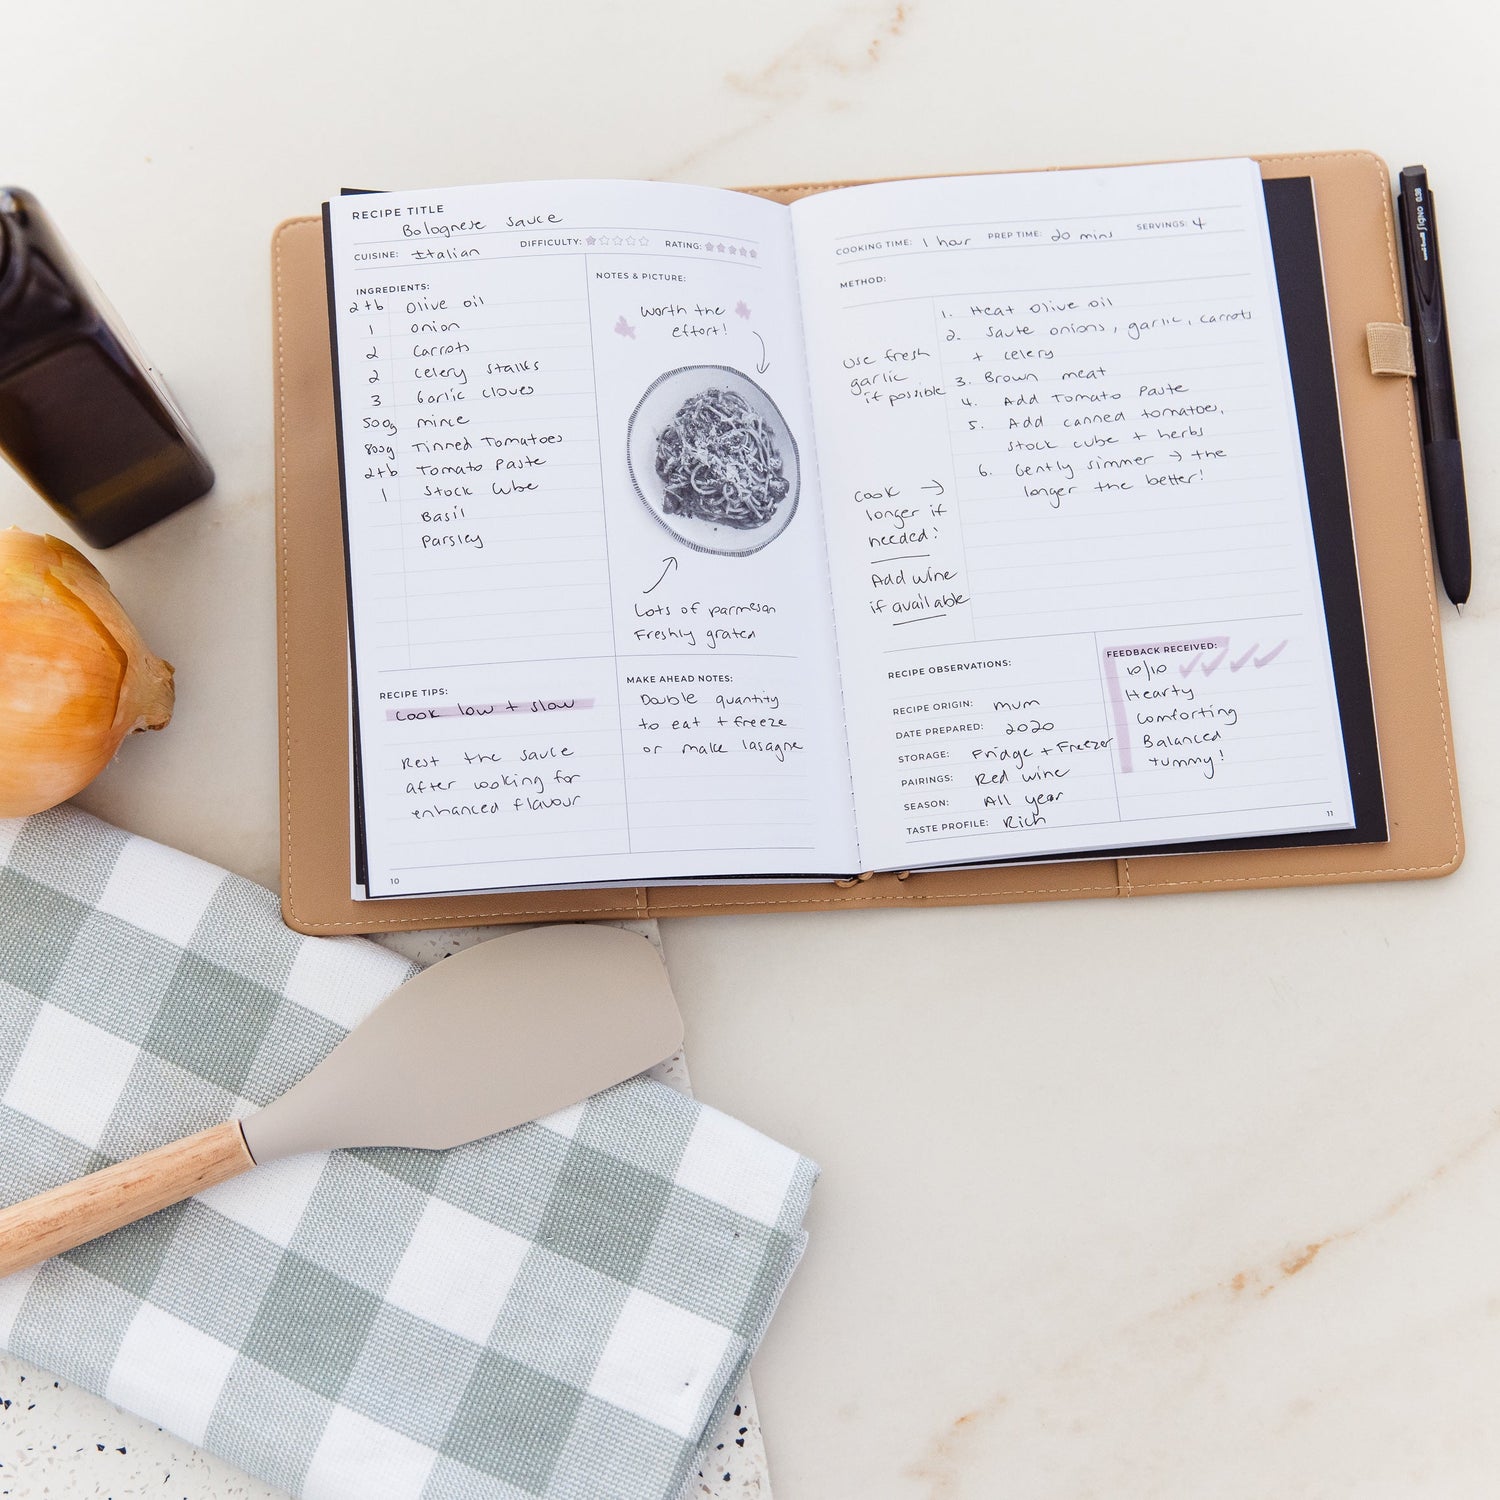 RECIPE TITLE
Bolognese Sauce
CUISINE: Italian DIFFICULTY: RATING:
INGREDIENTS:
2tb Olive oil
1 Onion
2 Carrots
2 Celery Stalks
3 Garlic Cloves
500g mince
800g Tinned Tomatoes
2tb Tomato Paste
1 Stock Cube
Basil
Parsley
NOTES & PICTURE:
Worth the
effort!
Lots of parmesan
Freshly grated
RECIPE TIPS:
Cook low + slow
Rest the sauce
after cooking for
enhanced flavour
MAKE AHEAD NOTES:
Double quantity
to eat + freeze
or make lasagne
10
COOKING TIME: 1 hour PREP TIME: 20 mins SERVINGS: 4
METHOD:
1. Heat Olive oil
2. Saute onions, garlic, carrots
+ celery
3. Brown meat
4. Add Tomato Paste
5. Add canned tomatoes,
stock cube + herbs
6. Gently simmer → the
longer the better!
use fresh
garlic
if possible
Cook →
longer if
needed!
Add wine
if available
RECIPE OBSERVATIONS:
RECIPE ORIGIN: mum
DATE PREPARED: 2020
STORAGE: Fridge + Freezer
PAIRINGS: Red wine
SEASON: All year
TASTE PROFILE: Rich
FEEDBACK RECEIVED:
10/10 ✓✓✓✓
Hearty
Comforting
Balanced
Yummy!
11
uni-ball Signo 0.38